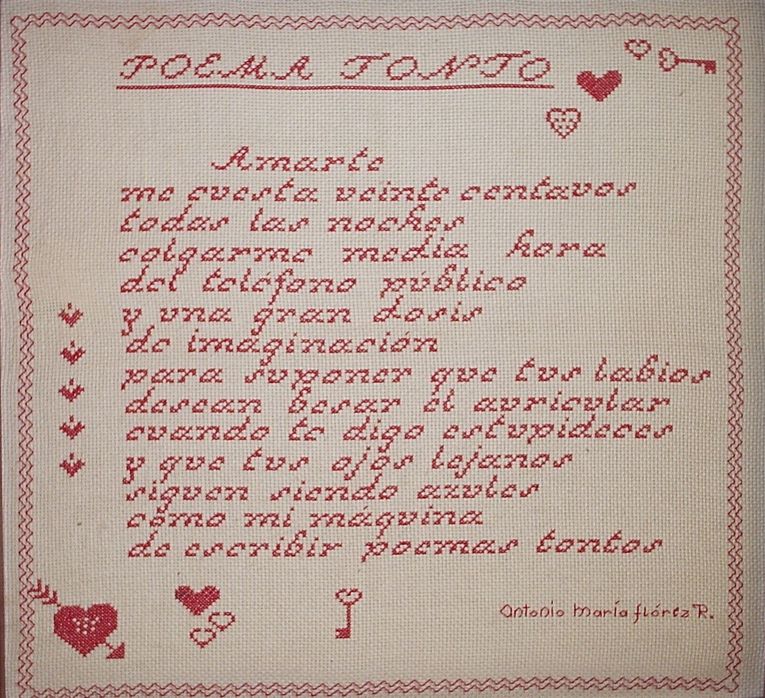 POEMA TONTO
Amarte
me cuesta veinte centavos
todas las noches
colgarme media hora
del teléfono público
y una gran dosis
de imaginación
para suponer que tus labios
desean besar el auricular
cuando te digo estupideces
y que tus ojos lejanos
siguen siendo azules
como mi máquina
de escribir poemas tontos
Antonio María flórez R.